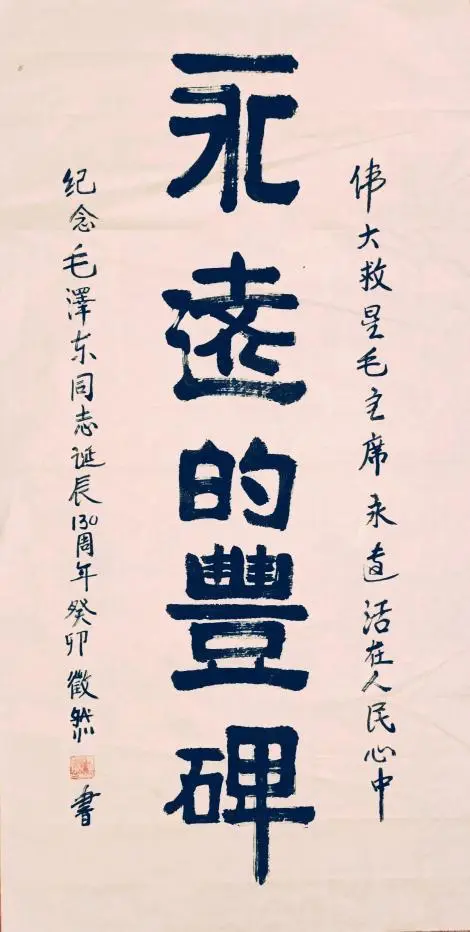 伟大救星毛主席永遠活在人民心中
永遠的豐碑
纪念毛澤东同志诞辰130周年癸卯 書